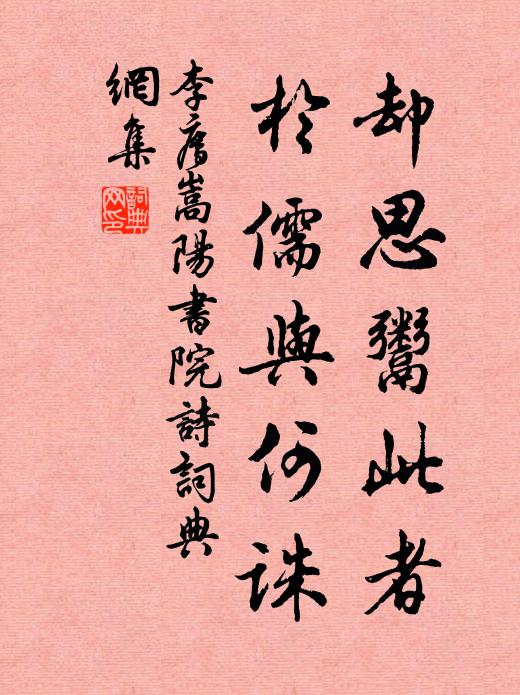 却思鬻此者
於儒與何誅
李廌嵩陽書院詩詞典
網集
詞典
网印